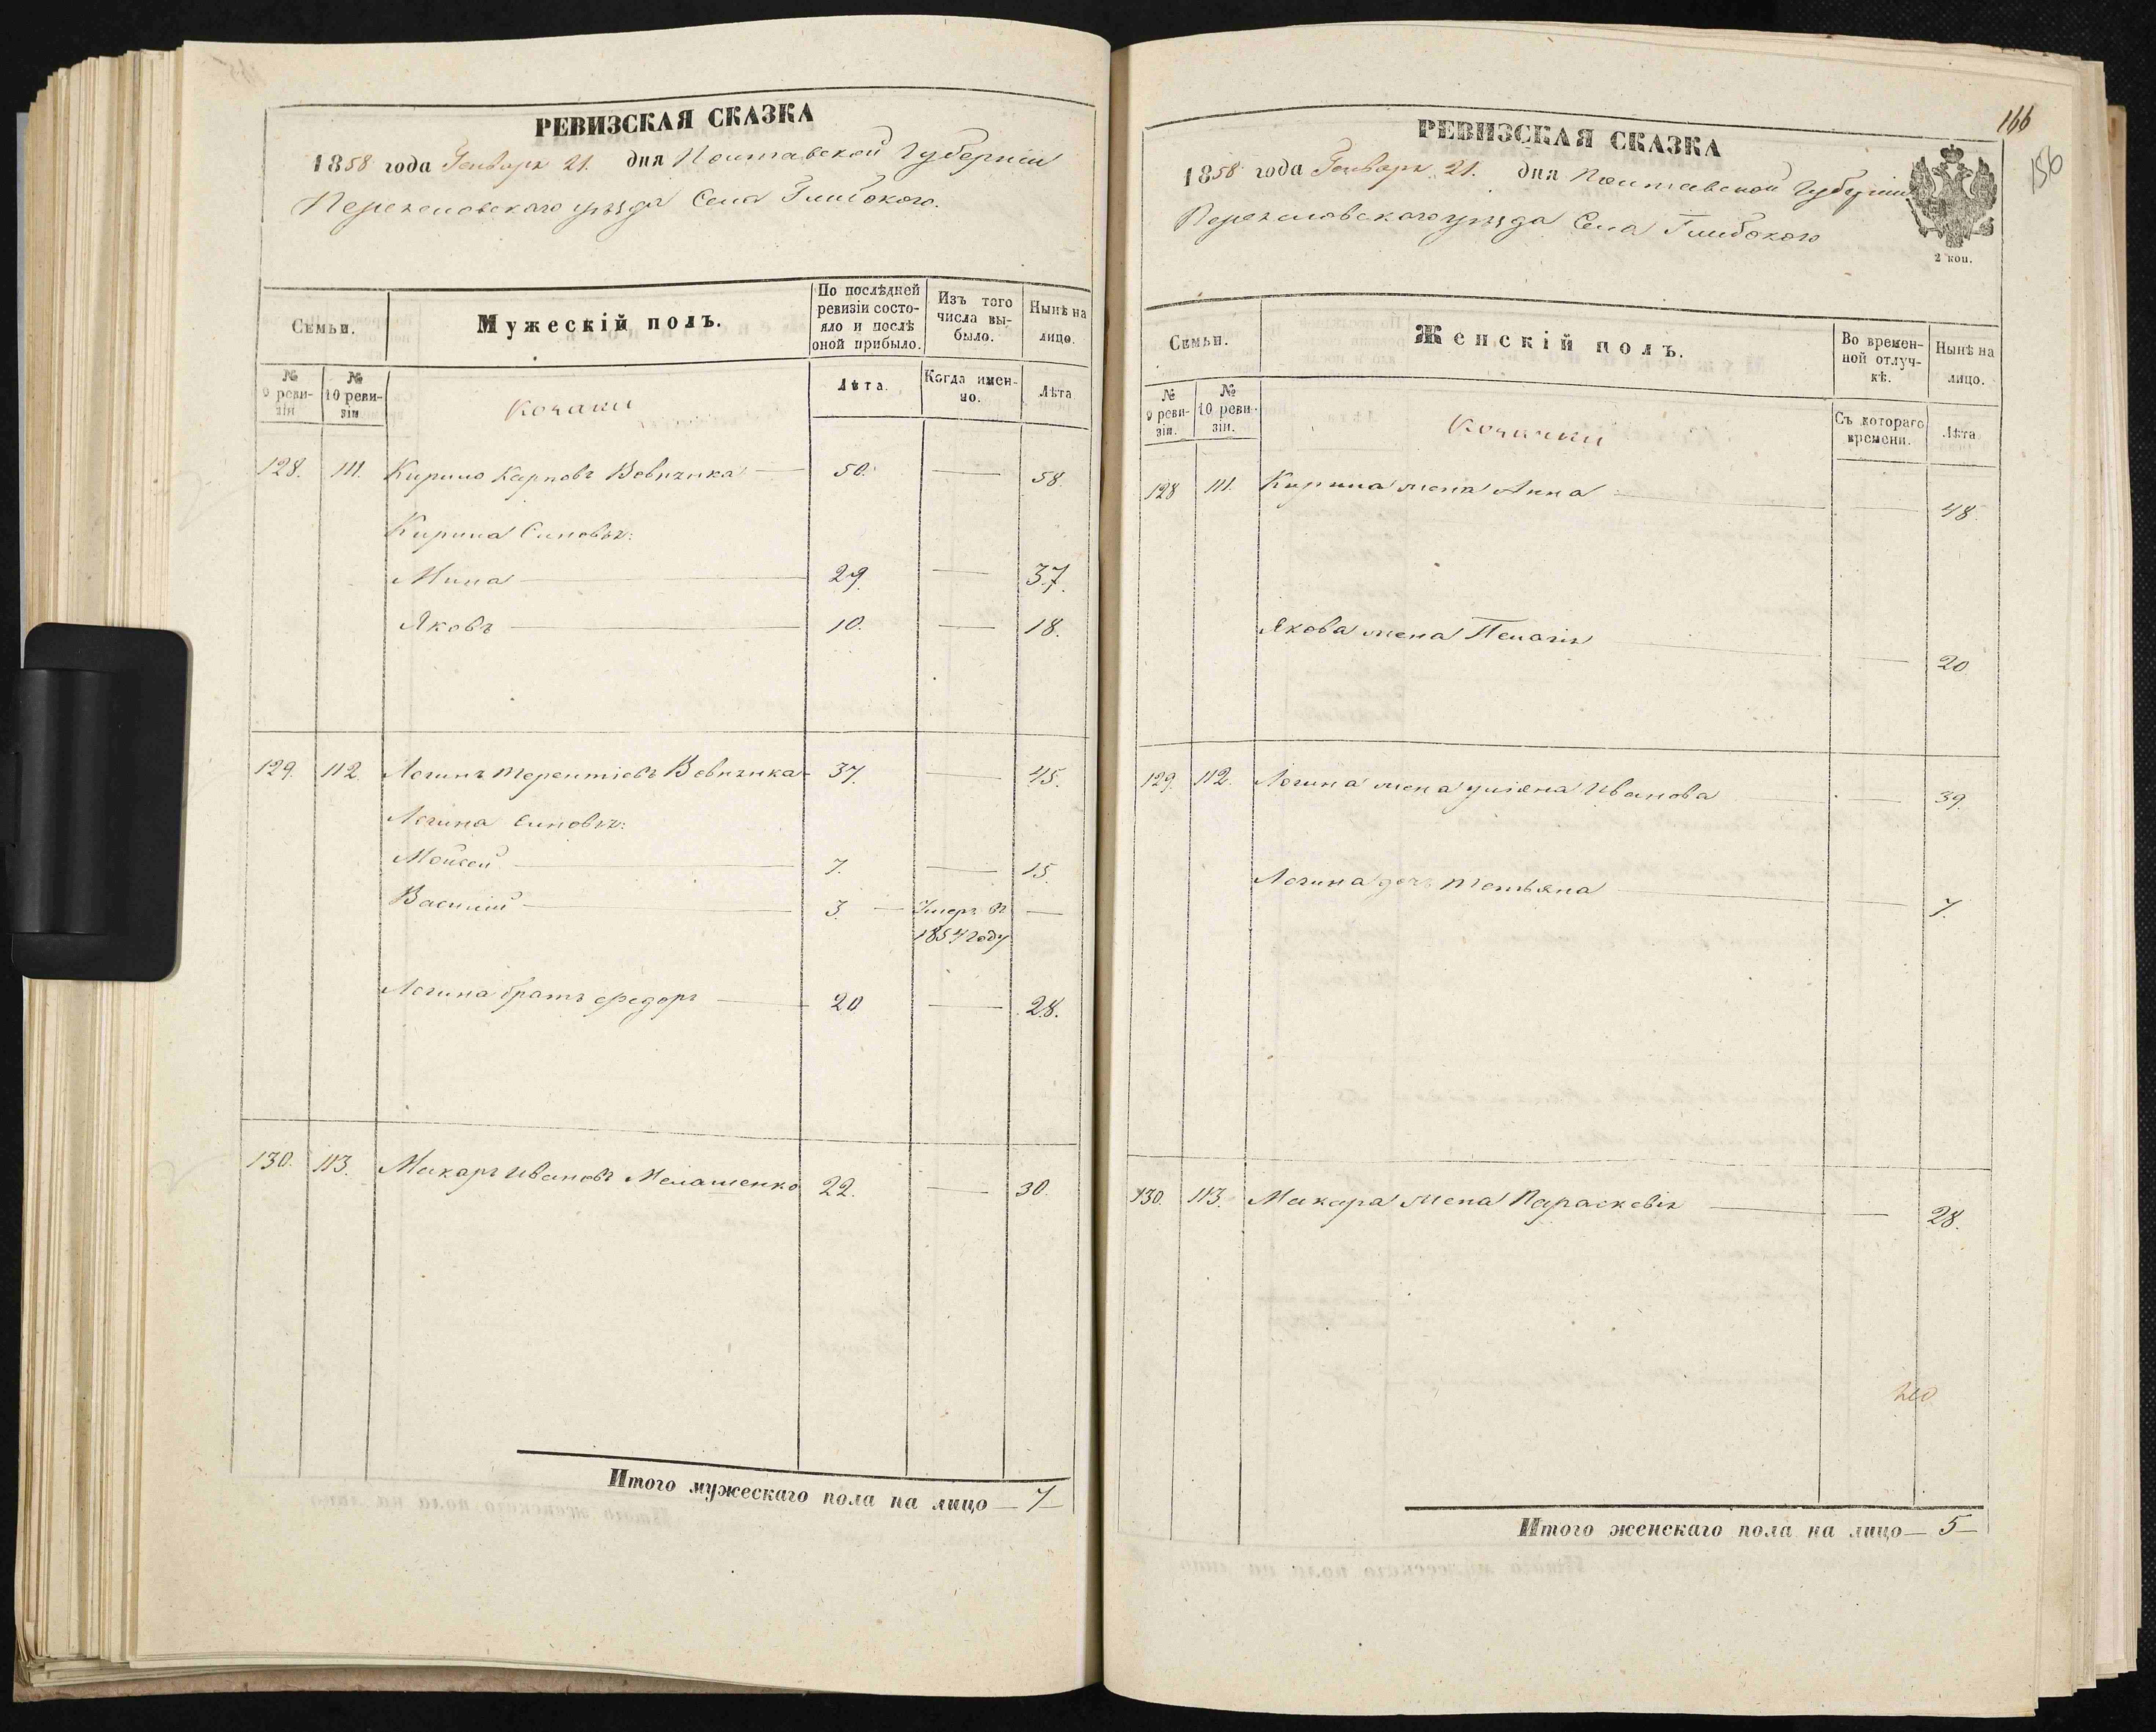 РЕВИЗСКАЯ СКАЗКА
1858 года Генваря 21. дня Полтавской Губерніи
Переяславского уезда Села Глибокого.
Семьи.
Мужескій полъ.
По послѣдней ревизіи состояло и послѣ оной прибыло.
Изъ того числа выбыло.
Нынѣ на лицо.
№ 9 ревизіи
№ 10 ревизіи
Козаки
Лѣта.
Когда именно.
Лѣта
128. 111. Кирило Карповъ Вовчика 50. — 58.
Кирила Синовья:
Мина 29. — 37.
Яковъ 10. — 18.
129. 112. Логинъ Терентіевъ Вовчика 37. — 45.
Логина Синовья:
Мойсей 7. — 15.
Василій 3. — Умеръ въ —
1854 году
Логина братъ Федоръ 20 — 28.
130. 113. Макаръ Ивановъ Мелашенко 22. — 30.
Итого мужескаго пола на лицо — 7 —
166
156
РЕВИЗСКАЯ СКАЗКА
1858 года Генваря 21. дня Полтавской Губерніи
Переяславского уезда Села Глибокого
2 коп.
Семьи.
Женскій полъ.
Во временной отлучкѣ.
Нынѣ на лицо.
№ 9 ревизіи.
№ 10 ревизіи.
Козачки
Съ котораго времени.
Лѣта
128 111. Кирила жена Анна — 48.
Якова жена Пелагія — 20
129. 112. Логина жена Уліяна Иванова — 39.
Логина дочь Тетьяна — 7.
130. 113. Макара жена Параскевія — 28.
Итого женскаго пола на лицо — 5 —